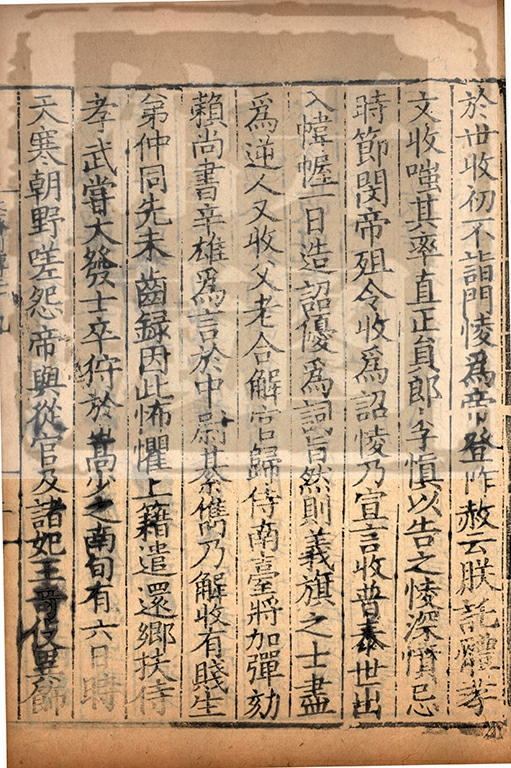 於世收初不詣門㥄爲帝登阼赦云朕託體孝
文收嗤其率直正員郎李愼以告之㥄深憤忌
時節閔帝殂令收爲詔㥄乃宣言收普泰世出
入幃幄一日造詔優爲詞旨然則義旗之士盡
爲逆人又收父老合解官歸侍南臺將加彈劾
賴尚書辛雄爲言於中尉綦儁乃解收有賤生
弟仲同先未齒録因此怖懼上籍遣還鄉扶侍
孝武嘗大發士卒狩於嵩少之南旬有六日時
天寒朝野嗟怨帝與從官及諸妃王哥伎異飾